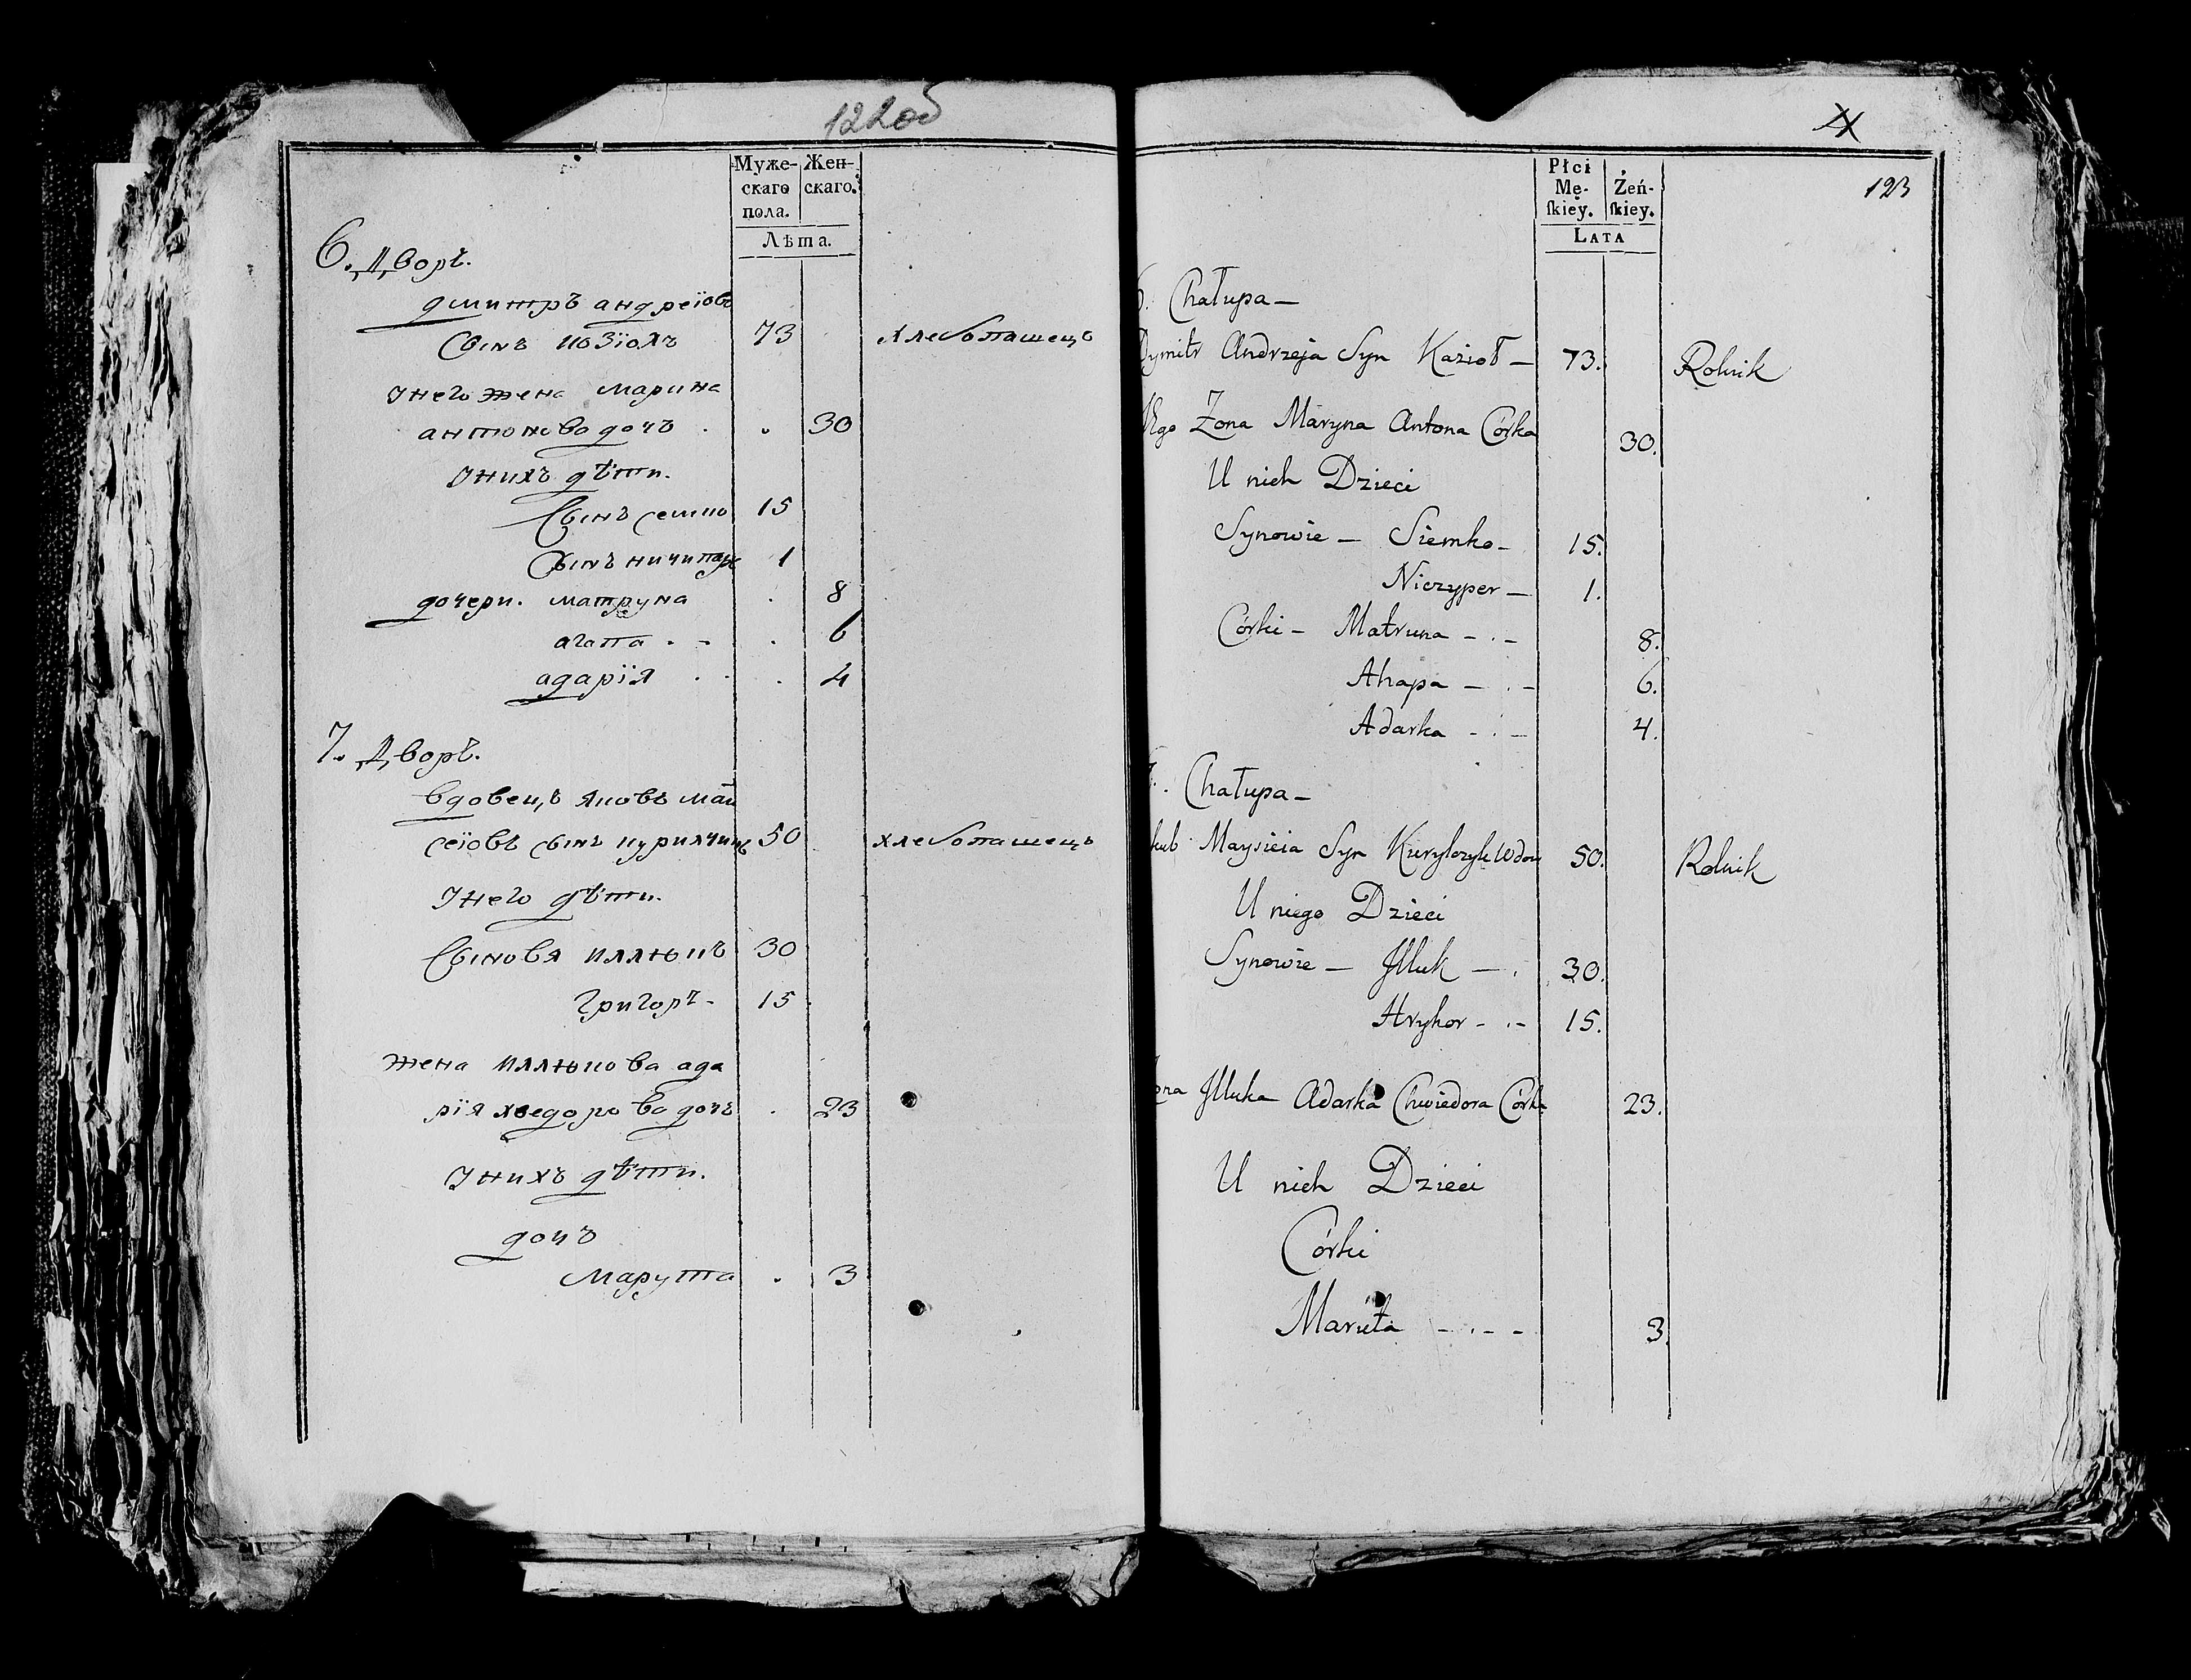 122об
Муже-
скаго
пола.
Жен-
скаго.
Лѣта.
6. Дворъ.
дмитръ андреіовъ
сынъ козіолъ 73 хлебопашецъ
Унего жена марина
антонова дочъ . . 30
Унихъ дѣти.
Сынъ семко 15
Сынъ ничипоръ 1
дочери. матруна . 8
агапа . . . 6
адарія . . . 4
7. Дворъ.
Вдовецъ яковъ май
сеіовъ сынъ курилчикъ 50 хлебопашецъ
Унего дѣти.
Сыновя иллюкъ 30
григоръ - 15
жена иллюкова ада
рія хведорова дочъ . 23
Унихъ дѣти.
дочъ
марута . 3
123
Płci
Mę-
skiey.
Żeń-
skiey.
LATA
6. Chałupa —
Dymitr Andrzeja Syn Kazioł — 73. Rolnik
Jego Żona Maryna Antona Córka 30.
U nich Dzieci
Synowie — Siemko — 15.
Niczyper — 1.
Córki — Matruna - . - 8.
Ahapa — . - 6.
Adarka - . - 4.
7. Chałupa —
kub Maysieia Syn Kurylczyk Wdow 50. Rolnik
U niego Dzieci
Synowie — Jlluk — . 30.
Hryhor - . - 15.
ona Jlluka Adarka Chwiedora Córka 23.
U nich Dzieci
Córki
Maruta - . - - 3.